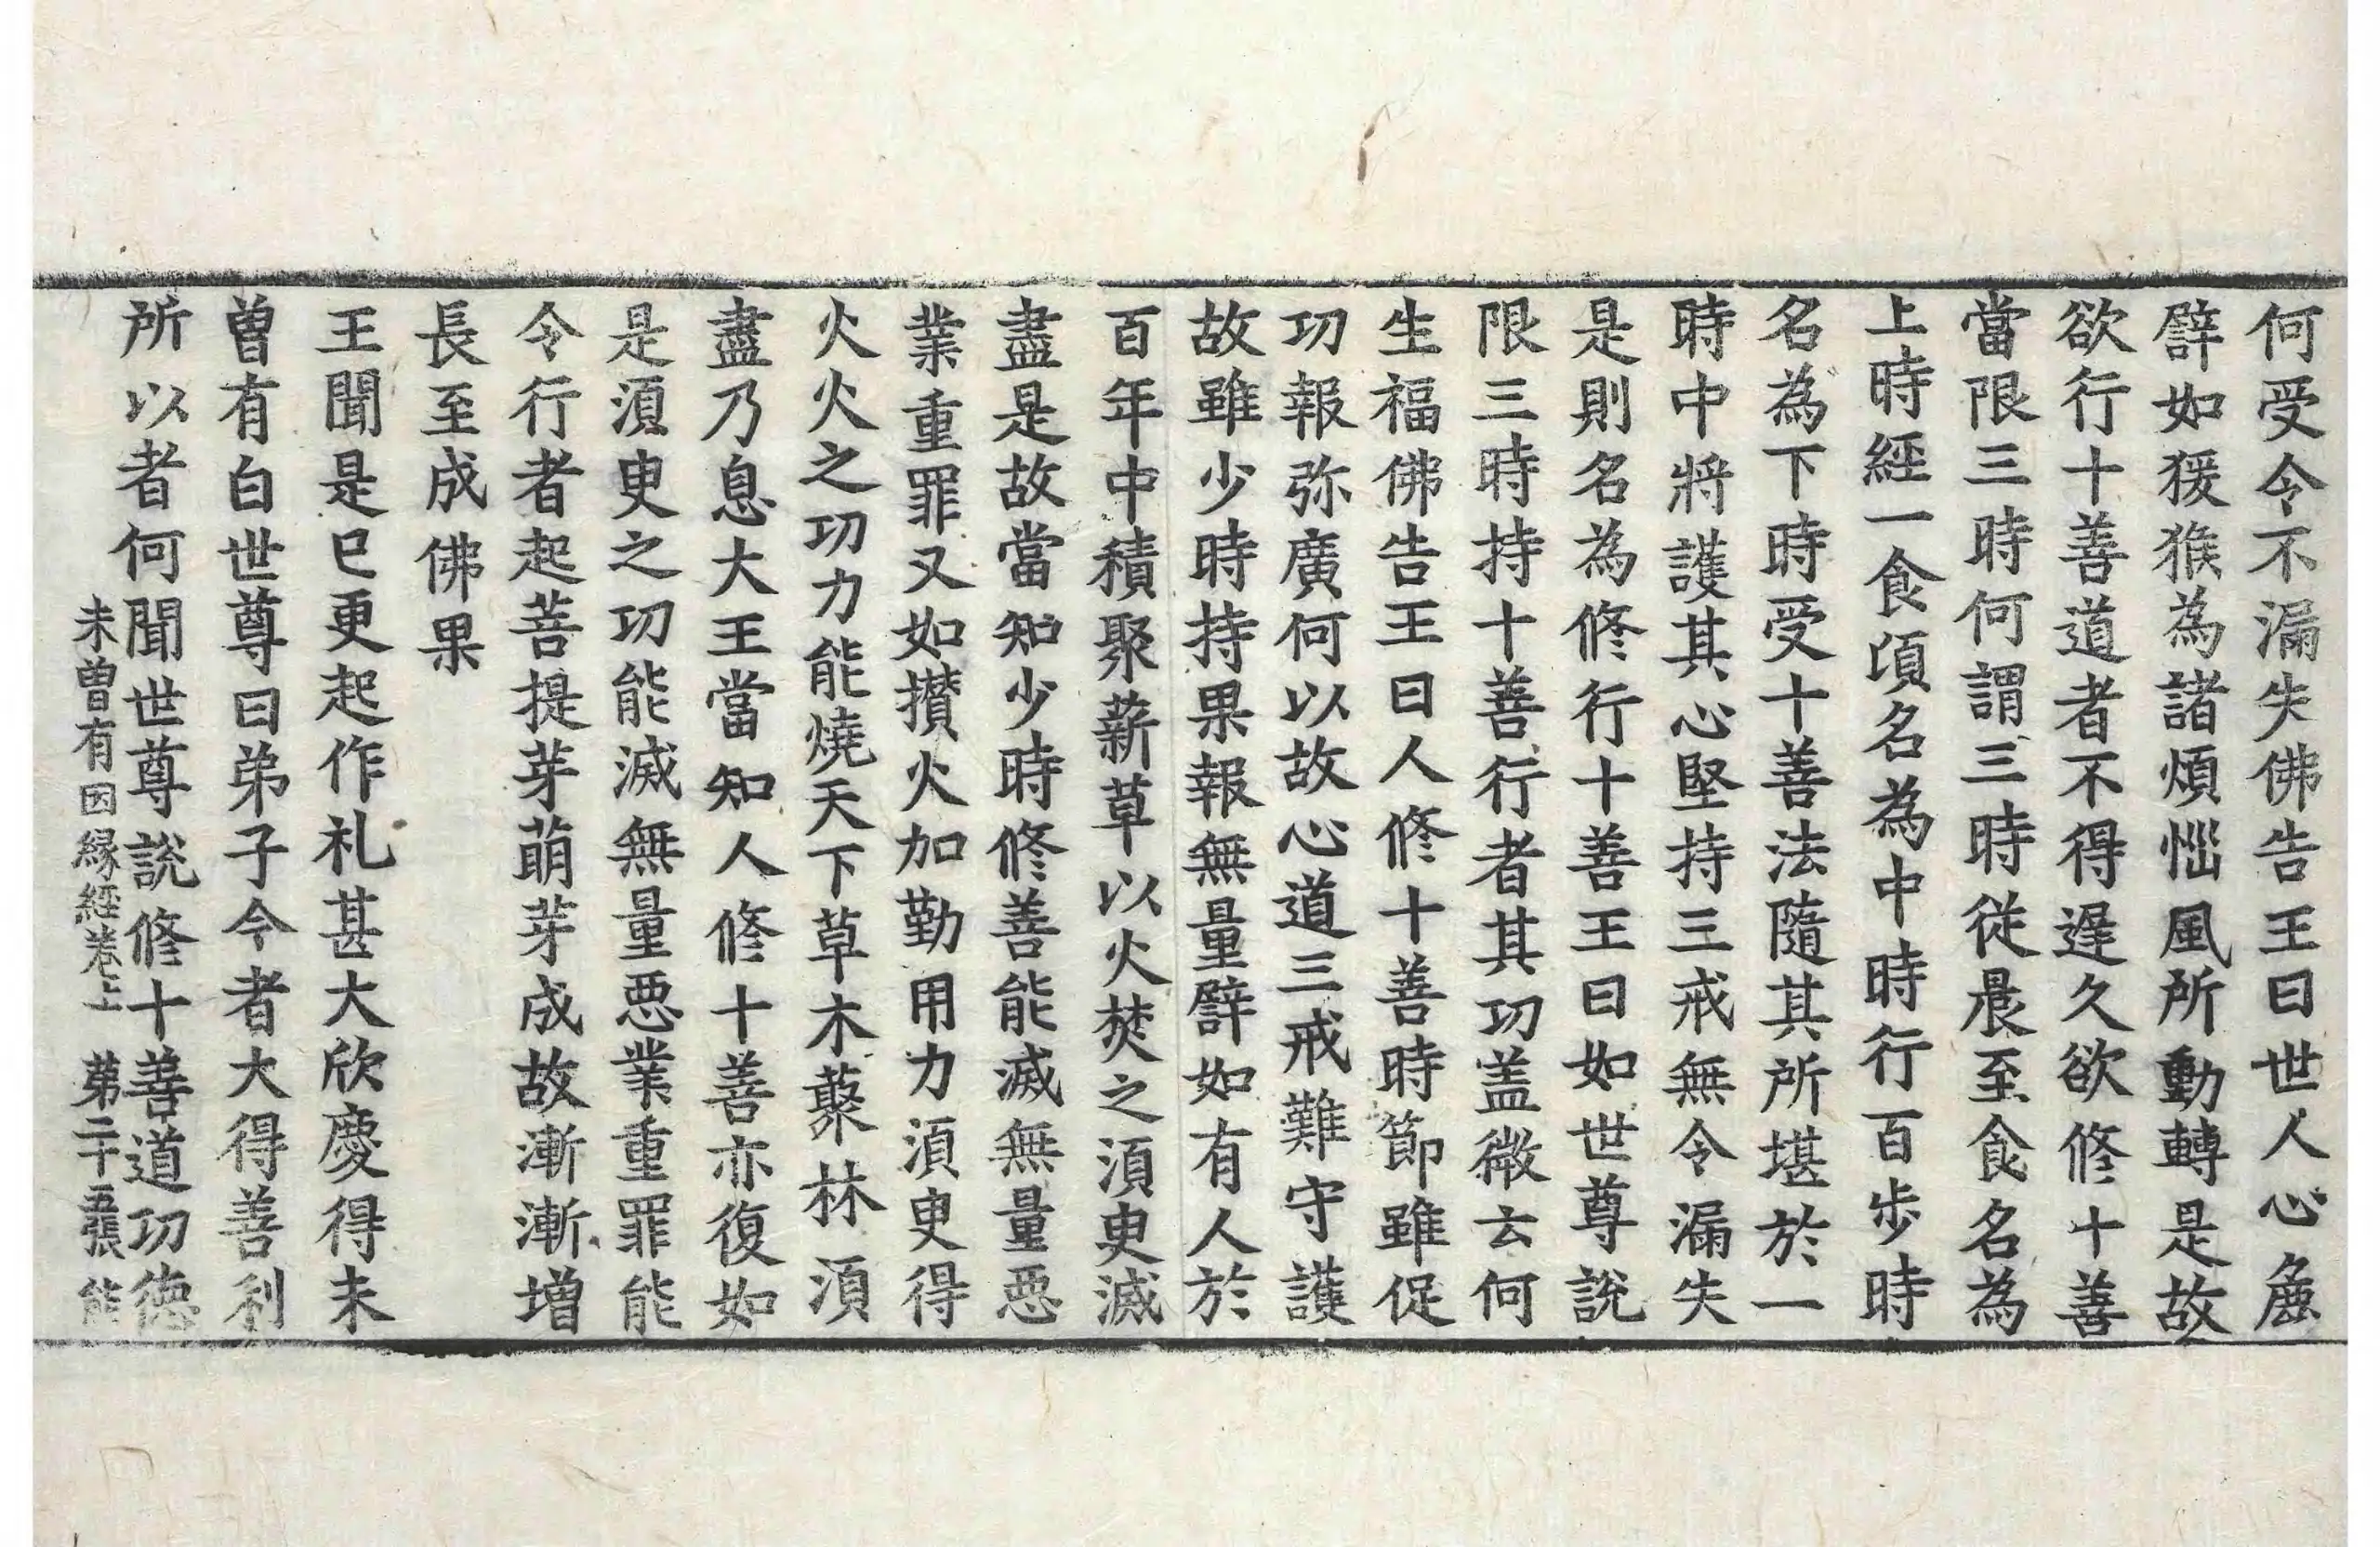 何受令不漏失佛告王曰世人心麁
譬如猨猴為諸煩惱風所動轉是故
欲行十善道者不得遲久欲修十善
當限三時何謂三時從晨至食名為
上時經一食頃名為中時行百步時
名為下時受十善法隨其所堪於一
時中將護其心堅持三戒無令漏失
是則名為修行十善王曰如世尊說
限三時持十善行者其功盖微云何
生福佛告王曰人修十善時節雖促
功報弥廣何以故心道三戒難守護
故雖少時持果報無量譬如有人於
百年中積聚薪草以火焚之須臾滅
盡是故當知少時修善能滅無量惡
業重罪又如攢火加勤用力須臾得
火火之功力能燒天下草木藂林須
盡乃息大王當知人修十善亦復如
是須臾之功能滅無量惡業重罪能
令行者起菩提芽萌芽成故漸漸增
長至成佛果
王聞是已更起作礼甚大欣慶得未
曾有白世尊曰弟子今者大得善利
所以者何聞世尊說修十善道功德
未曾有因緣經卷上 第二十五張 能